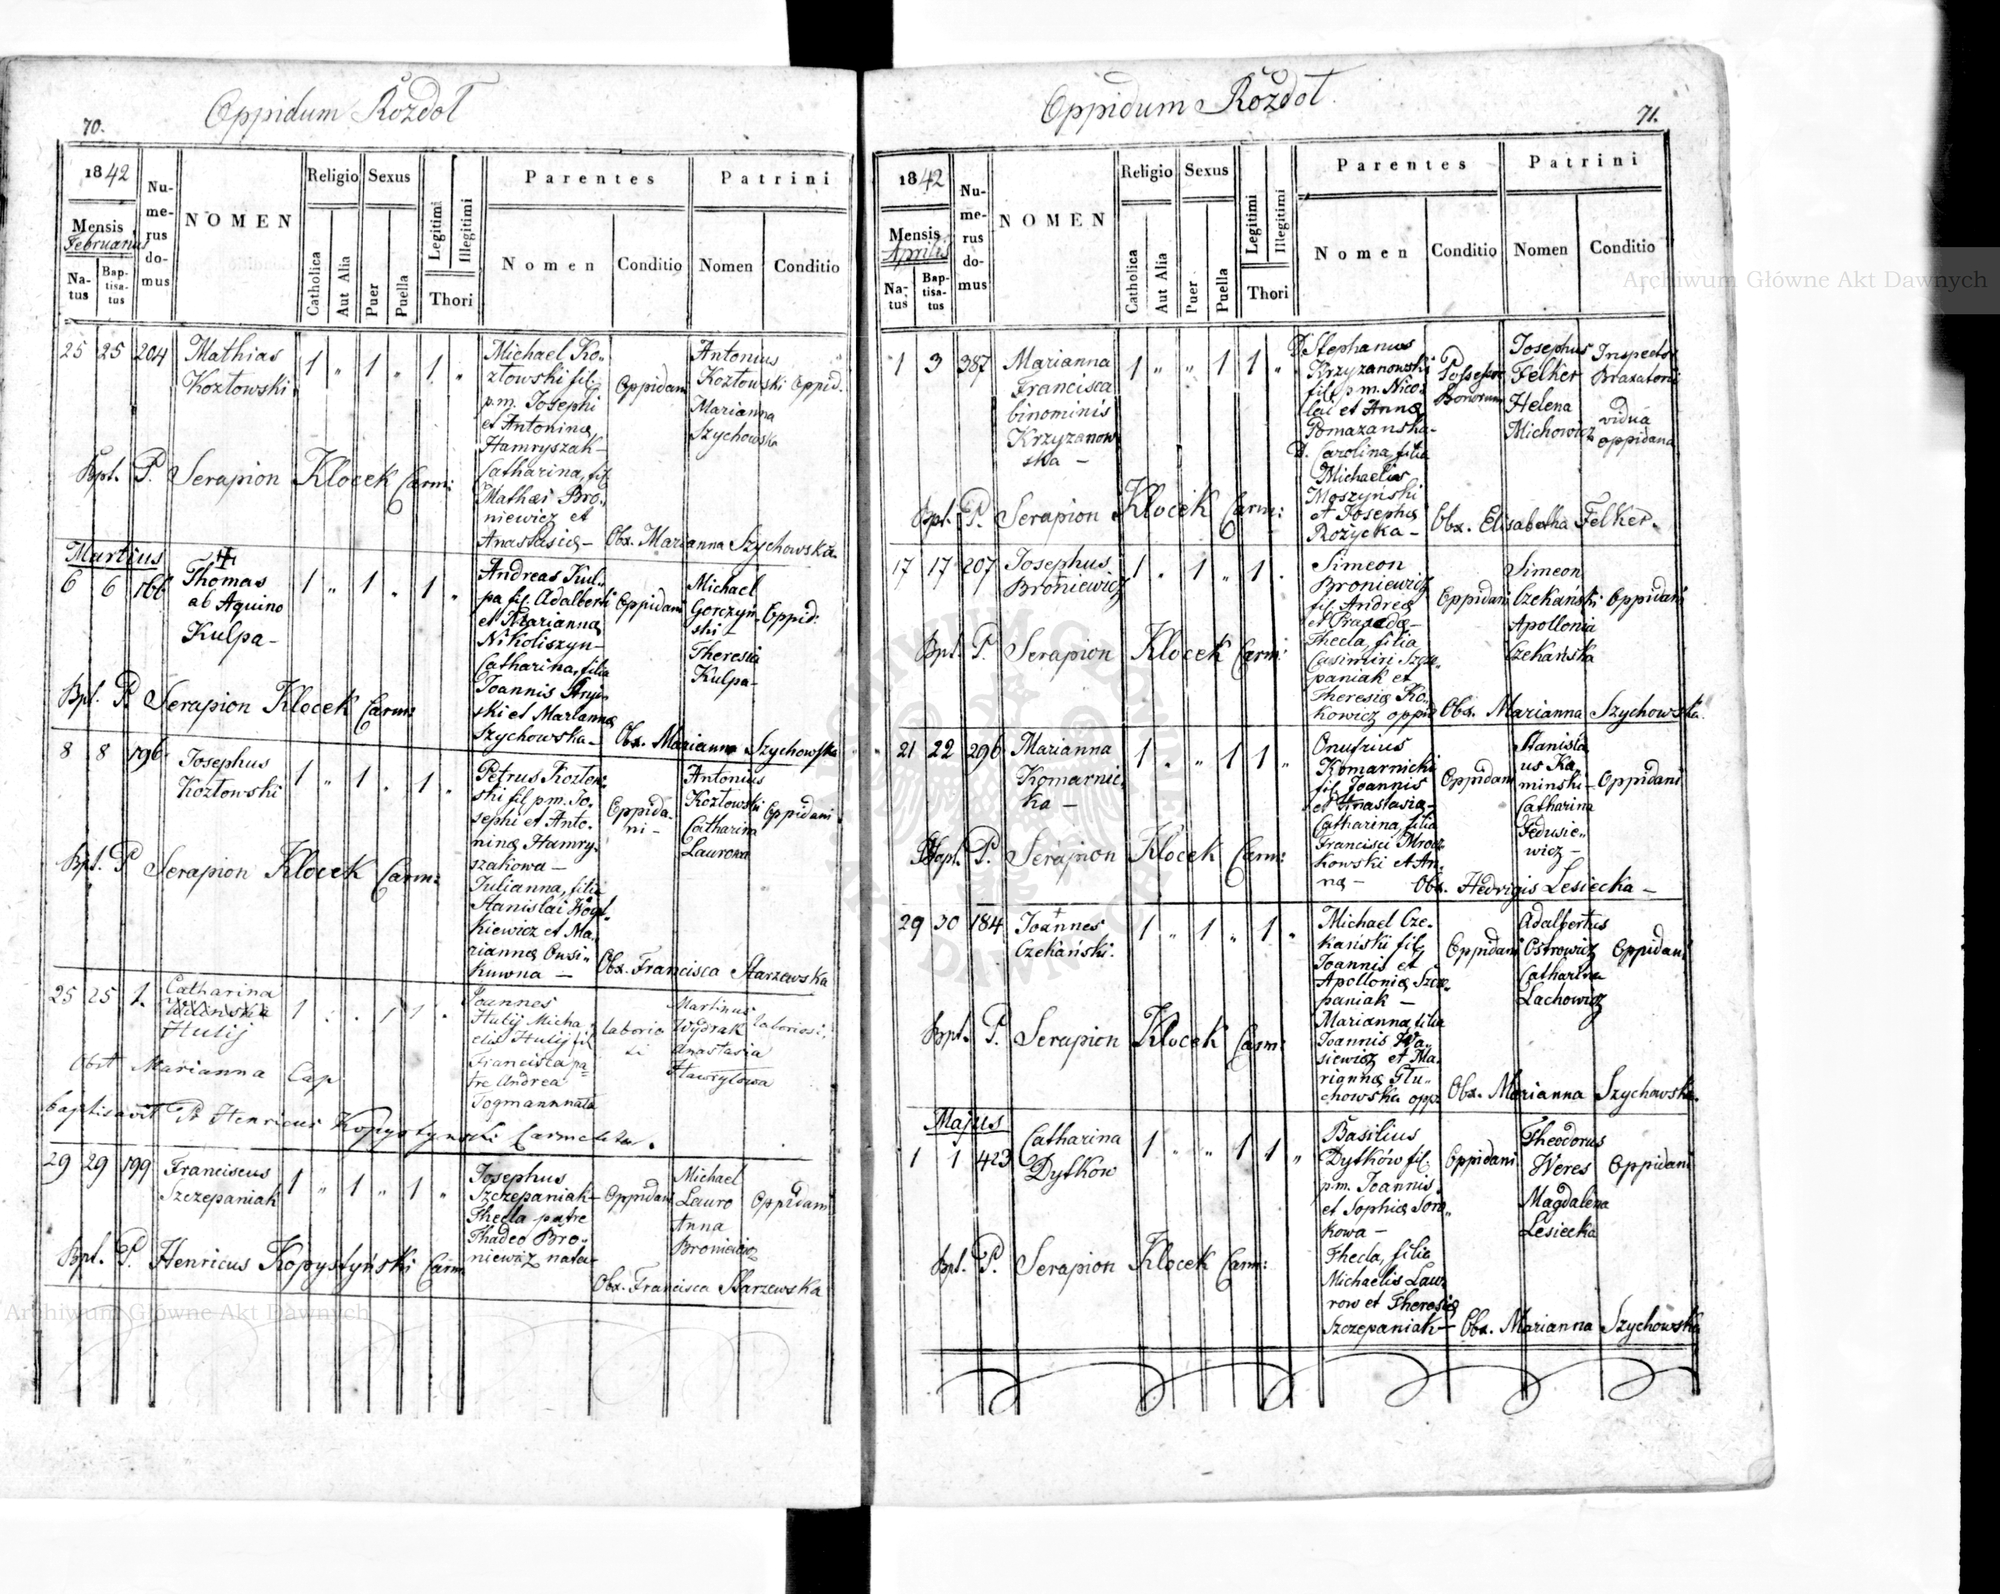 70.
Oppidum Rozdoł
1842
Mensis
Februarius
Na-
tus
Bap-
tisa-
tus
Nu-
me-
rus
do-
mus
NOMEN
Religio
Catholica
Aut Alia
Sexus
Puer
Puella
Legitimi
Illegitimi
Thori
Parentes
Nomen
Conditio
Patrini
Nomen
Conditio
25 25 204 Mathias
Kozłowski
1 „ 1 „ 1 „
Michael Ko-
złowski fil.
p.m. Josephi
et Antoninæ
Hamryszak –
Catharina, fil.
Mathæi Bro-
niewicz et
Anastasiæ –
Oppidani
Antonius
Kozłowski Oppid.
Marianna
Szychowska
Bpt. P. Serapion Klocek Carm:
Obx. Marianna Szychowska.
Martius
6 6 166 Thomas
ab Aquino
Kulpa –
1 „ 1 „ 1 „
Andreas Kul-
pa fil. Adalberti
et Mariannæ
Nikoliszyn –
Catharina, filia
Joannis
ski et Mariannæ
Szychowska –
Oppidani
Michael
Gorczyń-
ski –
Theresia
Kulpa –
Oppid:
Bpt. P. Serapion Klocek Carm:
Obx. Marianna Szychowska
8 8 196 Josephus
Kozłowski
1 „ 1 „ 1 „
Petrus Kozłow-
ski fil. p.m. Jo-
sephi et Anto-
ninæ Hamry-
szakowa –
Julianna, filia
Stanislai
kiewicz et Ma-
riannæ
kuwna –
Oppida-
ni –
Antonius
Kozłowski
Catharina
Laurowa
Oppidani
Bpt. P. Serapion Klocek Carm:
Obx. Francisca Starzewska
25 25 1. Catharina
Hulij
1 . . 1 1 .
Joannes
Hulij Micha-
elis Hulij fil.
Francisca pa-
tre Andrea
Togmann nata
laborio-
si
Martinus
Wyżrak
Anastasia
Hawryłowa
laboriosi
Obst Marianna Cap
baptisavit Pr Henricus Kopystynski Carmelita.
29 29 199 Franciscus
Szczepaniak
1 „ 1 „ 1 „
Josephus
Szczepaniak –
Thecla patre
Thadeo Bro-
niewicz nata –
Oppidani
Michael
Lauro
Anna
Broniewicz
Oppidani
Bpt. P. Henricus Kopystyński Carm.
Obx. Francisca Starzewska
Archiwum Główne Akt Dawnych
Oppidum Rozdoł.
71.
1842
Mensis
Aprilis
Na-
tus
Bap-
tisa-
tus
Nu-
me-
rus
do-
mus
NOMEN
Religio
Catholica
Aut Alia
Sexus
Puer
Puella
Legitimi
Illegitimi
Thori
Parentes
Nomen
Conditio
Patrini
Nomen
Conditio
Archiwum Główne Akt Dawnych
1 3 387 Marianna
Francisca
binominis
Krzyzanow-
ska –
1 „ „ 1 1 „
D. Stephanus
Krzyzanowski
fil. p.m. Nico-
lai et Annæ
Pomazanska –
D. Carolina, filia
Michaelis
Moszyński
et Josephæ
Rożycka –
Possessor
Bonorum
Josephus
Felker
Helena
Michowicz
Inspector
Braxatorii
vidua
oppidana
Bpt. P. Serapion Klocek Carm:
Obx. Elisabetha Felker.
17 17 207 Josephus
Broniewicz
1 „ 1 „ 1 „
Simeon
Broniewicz
fil. Andreæ
et Praxedæ –
Thecla, filia
Casimiri Szcze-
paniak et
Theresiæ Ko-
kowicz oppid.
Oppidani
Simeon
Czekański
Apollonia
Czekańska
Oppidani
Bpt. P. Serapion Klocek Carm:
Obx. Marianna Szychowska.
21 22 296 Marianna
Komarnic-
ka –
1 „ „ 1 1 „
Onufrius
Komarnicki
fil. Joannis
et Anastasiæ –
Catharina, filia
Francisci Mrocz-
kowski et An-
næ –
Oppidani
Stanisla-
us Ka-
minski –
Catharina
Fedusie-
wicz –
Oppidani
Bpt. P. Serapion Klocek Carm:
Obx. Hedvigis Lesiecka –
29 30 184 Joannes
Czekański.
1 „ 1 „ 1 „
Michael Cze-
kański fil.
Joannis et
Apolloniæ Szcze-
paniak –
Marianna, filia
Joannis Wa-
siewicz et Ma-
riannæ Głu-
chowska opp.
Oppidani
Adalbertus
Ostrowicz
Catharina
Lachowicz
Oppidani
Bpt. P. Serapion Klocek Carm:
Obx. Marianna Szychowska.
Majus
1 1 423 Catharina
Dytków
1 „ „ 1 1 „
Basilius
Dytków fil.
p.m. Joannis
et Sophiæ Soro-
kowa –
Thecla, filia
Michaelis Law-
row et Theresiæ
Szczepaniak –
Oppidani
Theodorus
Weres
Magdalena
Lesiecka
Oppidani
Bpt. P. Serapion Klocek Carm:
Obx. Marianna Szychowska